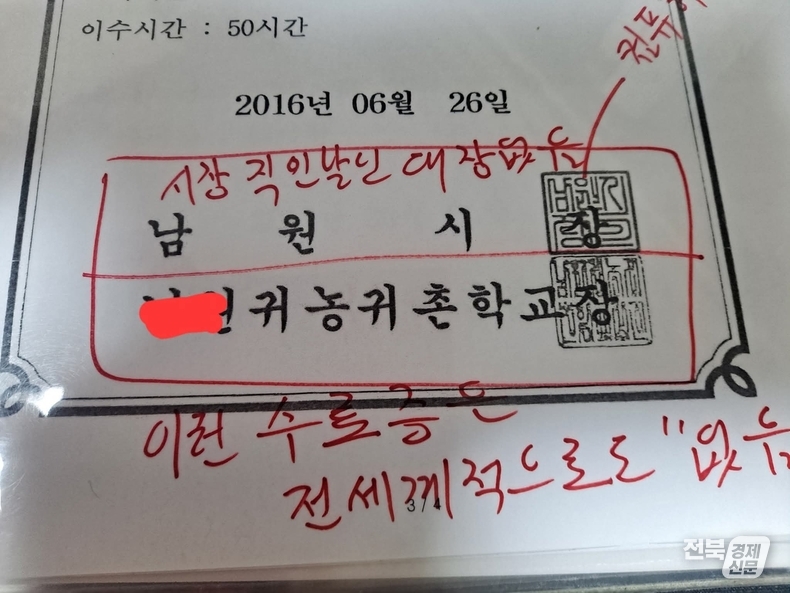 이수시간 : 50시간
컴퓨
2016년 06월 26일
시장 직인날인 대장없음
남원시장
귀농귀촌학교장
이런 수료증은
전세계적으로도 "없음
3/4
전북경제신문